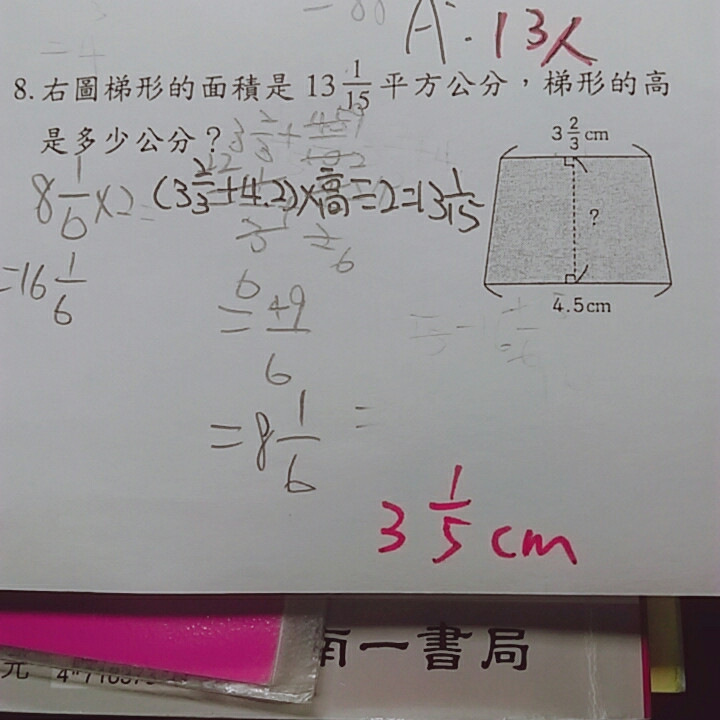 A. 13人
8. 右圖梯形的面積是 13 1/15 平方公分，梯形的高
是多少公分？
3 2/3 cm
8 1/6 × 2
(3 2/3 + 4.2) × 高 ÷ 2 = 13 1/15
?
= 16 1/6
= 49/6
4.5cm
= 8 1/6
=
3 1/5 cm
南一書局
元